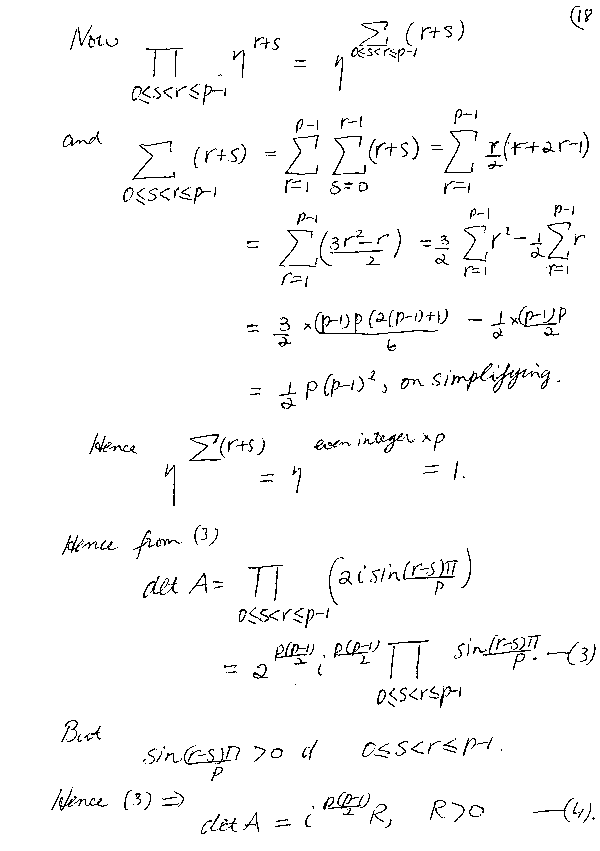 (18
Now ∏_{0≤s<r≤p-1} η^{r+s} = η^{∑_{0≤s<r≤p-1} (r+s)}
and ∑_{0≤s<r≤p-1} (r+s) = ∑_{r=1}^{p-1} ∑_{s=0}^{r-1} (r+s) = ∑_{r=1}^{p-1} r/2 (r+2r-1)
= ∑_{r=1}^{p-1} (3r²-r / 2) = 3/2 ∑_{r=1}^{p-1} r² - 1/2 ∑_{r=1}^{p-1} r
= 3/2 × (p-1)p(2(p-1)+1) / 6 - 1/2 × (p-1)p / 2
= 1/2 p(p-1)², on simplifying.
Hence η^{∑(r+s)} = η^{even integer × p} = 1.
Hence from (3)
det A = ∏_{0≤s<r≤p-1} (2i sin (r-s)π/p)
= 2^{p(p-1)/2} i^{p(p-1)/2} ∏_{0≤s<r≤p-1} sin (r-s)π/p. —(3)
But
sin (r-s)π/p > 0 if 0≤s<r≤p-1.
Hence (3) ⇒ det A = i^{p(p-1)/2} R, R>0 —(4).